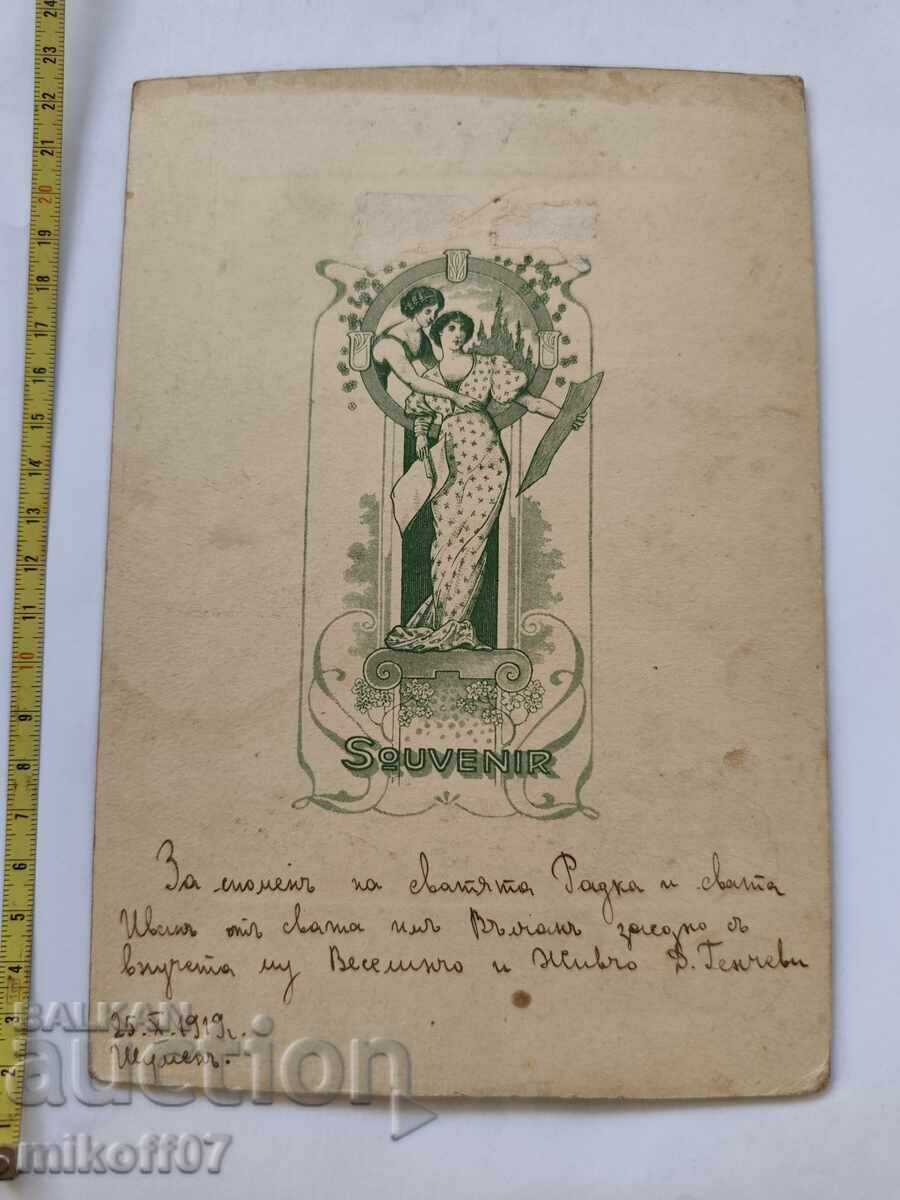 SOUVENIR
За споменъ на сватята Радка и свата
Иванъ отъ свата имъ Вълчанъ заедно съ
внучета му Веселинчо и Живчо Д. Генчеви
25.X.1919г.
Шуменъ.
BALKAN
auction
mikoff07
1 2 3 4 5 6 7 8 9 10 11 12 13 14 15 16 17 18 19 20 21 22 23 24